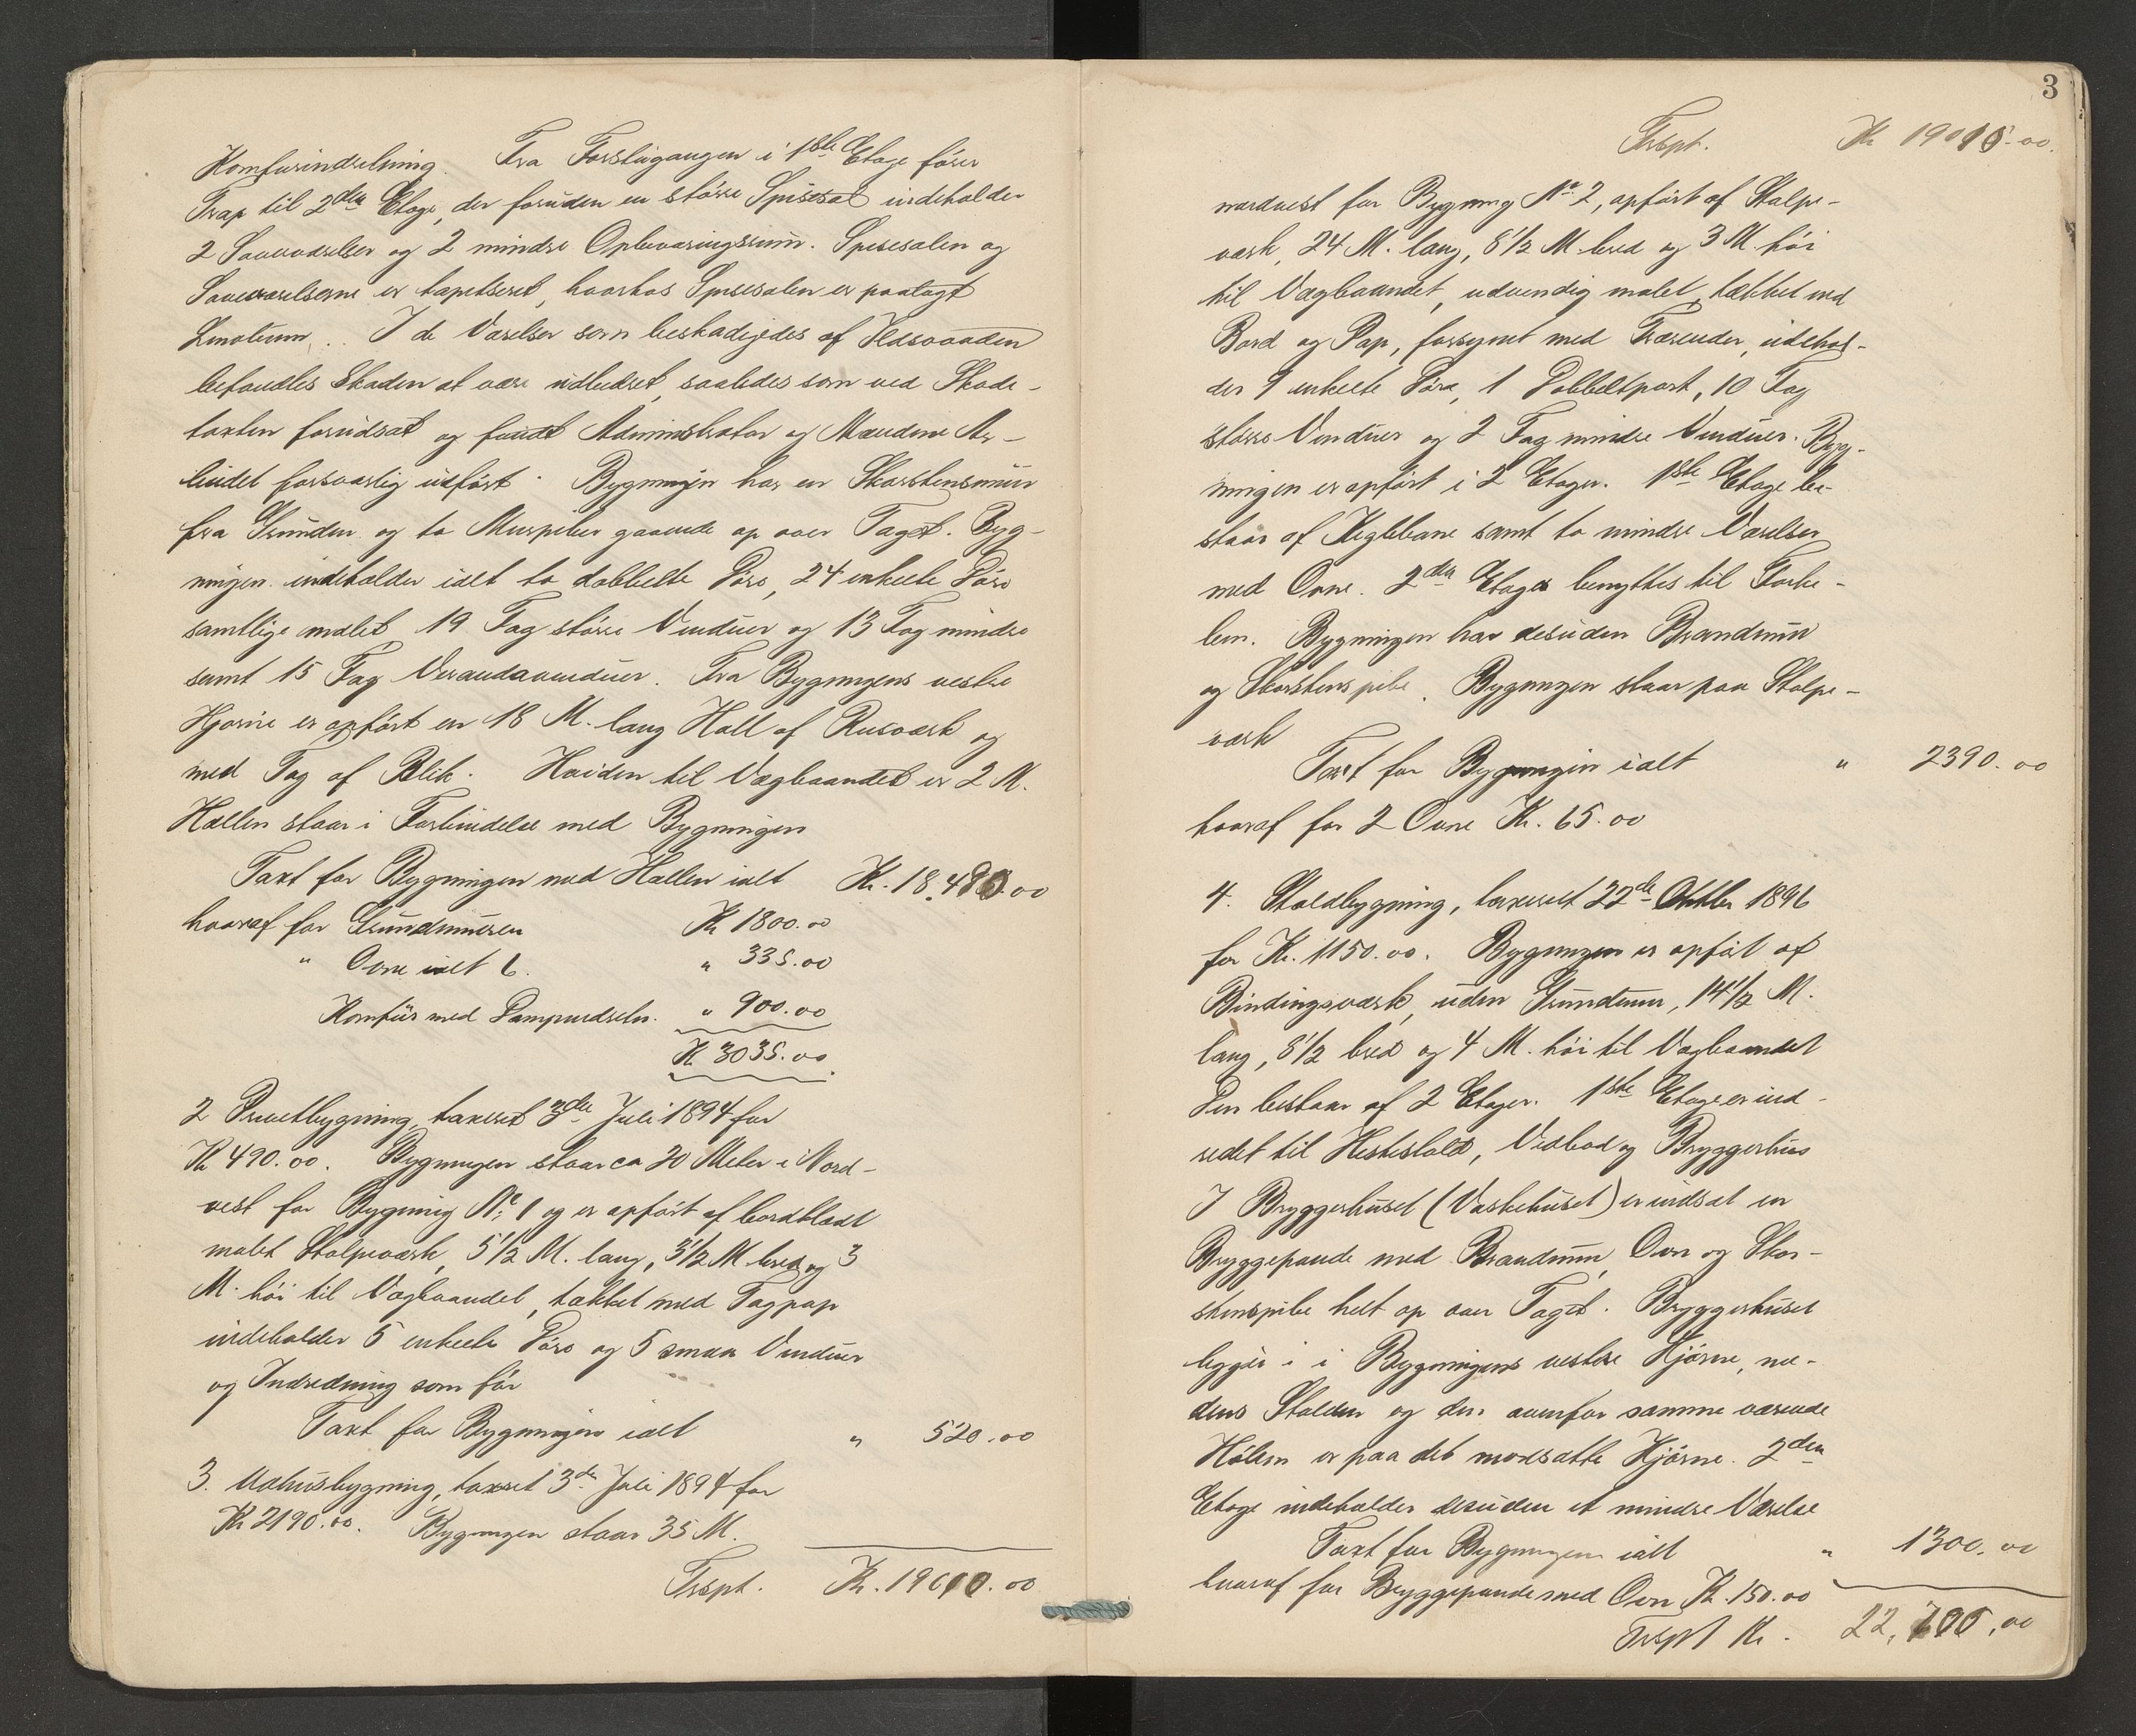 Komfurindretning. Fra Forstugangen i 1ste Etage fører
Trap til 2den Etage, der foruden en større Spisesal indeholder
2 Soveværelser og 2 mindre Opbevaringsrum. Spisesalen og
Soveværelserne er tapetseret, hvorhos Spisesalen er paalagt
Linoleum. I de Værelser som beskadigedes af Ildsvaaden
befandtes Skaden at være udbedret, saaledes som ved Skade-
taxten forudsat og fandt Administrator og Mændene Ar-
beidet forsvarlig udført. Bygningen har en Skorstensmur
fra Grunden og to Murpiber gaaende op over Taget. Byg-
ningen indeholder ialt to dobbelte Døre, 24 enkelte Døre
samtlige malet, 19 Fag større Vinduer og 13 Fag mindre
samt 15 Fag Verandavinduer. Fra Bygningens vestre
Hjørne er opført en 18 M. lang Hall af Rusværk og
med Tag af Blik. Høiden til Vægbaandet er 2 M.
Hallen staar i Forbindelse med Bygningen
Taxt for Bygningen med Hallen ialt Kr. 18.480.00
hvoraf for Grundmuren Kr 1800.00
" Ovne ialt 6. " 335.00
Komfur med Dampindretn. " 900.00
Kr 3035.00
2 Privetbygning, taxeret 3die Juli 1894 for
Kr 490.00. Bygningen staar ca 20 Meter i Nord-
vest for Bygning No 1 og er opført af bordklædt
malet Stolpeværk, 5 1/2 M. lang, 3 1/2 M bred og 3
M. høi til Vægbaandet, tækket med Tagpap
indeholder 5 enkelte Døre og 5 smaa Vinduer
og Indredning som før
Taxt for Bygningen ialt " 520.00
3. Udhusbygning, taxeret 3die Juli 1894 for
Kr 2190.00. Bygningen staar 35 M.
Trspt. Kr. 19010.00
3
Trspt. Kr 19015.00
nordvest for Bygning No 2, opført af Stolpe-
værk, 24 M. lang, 8 1/2 M. bred og 3 M. høi
til Vægbaandet, udvendig malet, tækket med
Bord og Pap, forsynet med Trærender, indehol-
der 9 enkelte Døre, 1 Dobbeltport, 10 Fag
større Vinduer og 2 Fag mindre Vinduer. Byg-
ningen er opført i 2 Etager. 1ste Etage be-
staar af Keglebane samt to mindre Værelser
med Ovne. 2den Etage benyttes til
lem. Bygningen har desuden Brandmur
og Skorstenspibe. Bygningen staar paa Stolpe-
værk
Taxt for Bygningen ialt " 2390.00
hvoraf for 2 Ovne Kr. 65.00
4. Staldbygning, taxeret 22de Oktbr 1896
for Kr. 1150.00. Bygningen er opført af
Bindingsværk, uden Grundmur, 14 1/2 M.
lang, 8 1/2 bred og 4 M. høi til Vægbaandet
Den bestaar af 2 Etager. 1ste Etage er ind-
redet til Hestestald, Vedbod og Bryggerhus
I Bryggerhuset (Vaskehuset) er indsat en
Bryggepande med Brandmur, Ovn og Skor-
stenspibe helt op over Taget. Bryggerhuset
ligger i i Bygningens vestre Hjørne, me-
dens Stalden og den ovenfor samme værende
Hølem er paa det modsatte Hjørne. 2den
Etage indeholder desuden et mindre Værelse
Taxt for Bygningen ialt " 1300.00
hvoraf for Bryggepande med Ovn Kr. 150.00
Trspt Kr. 22,705,00